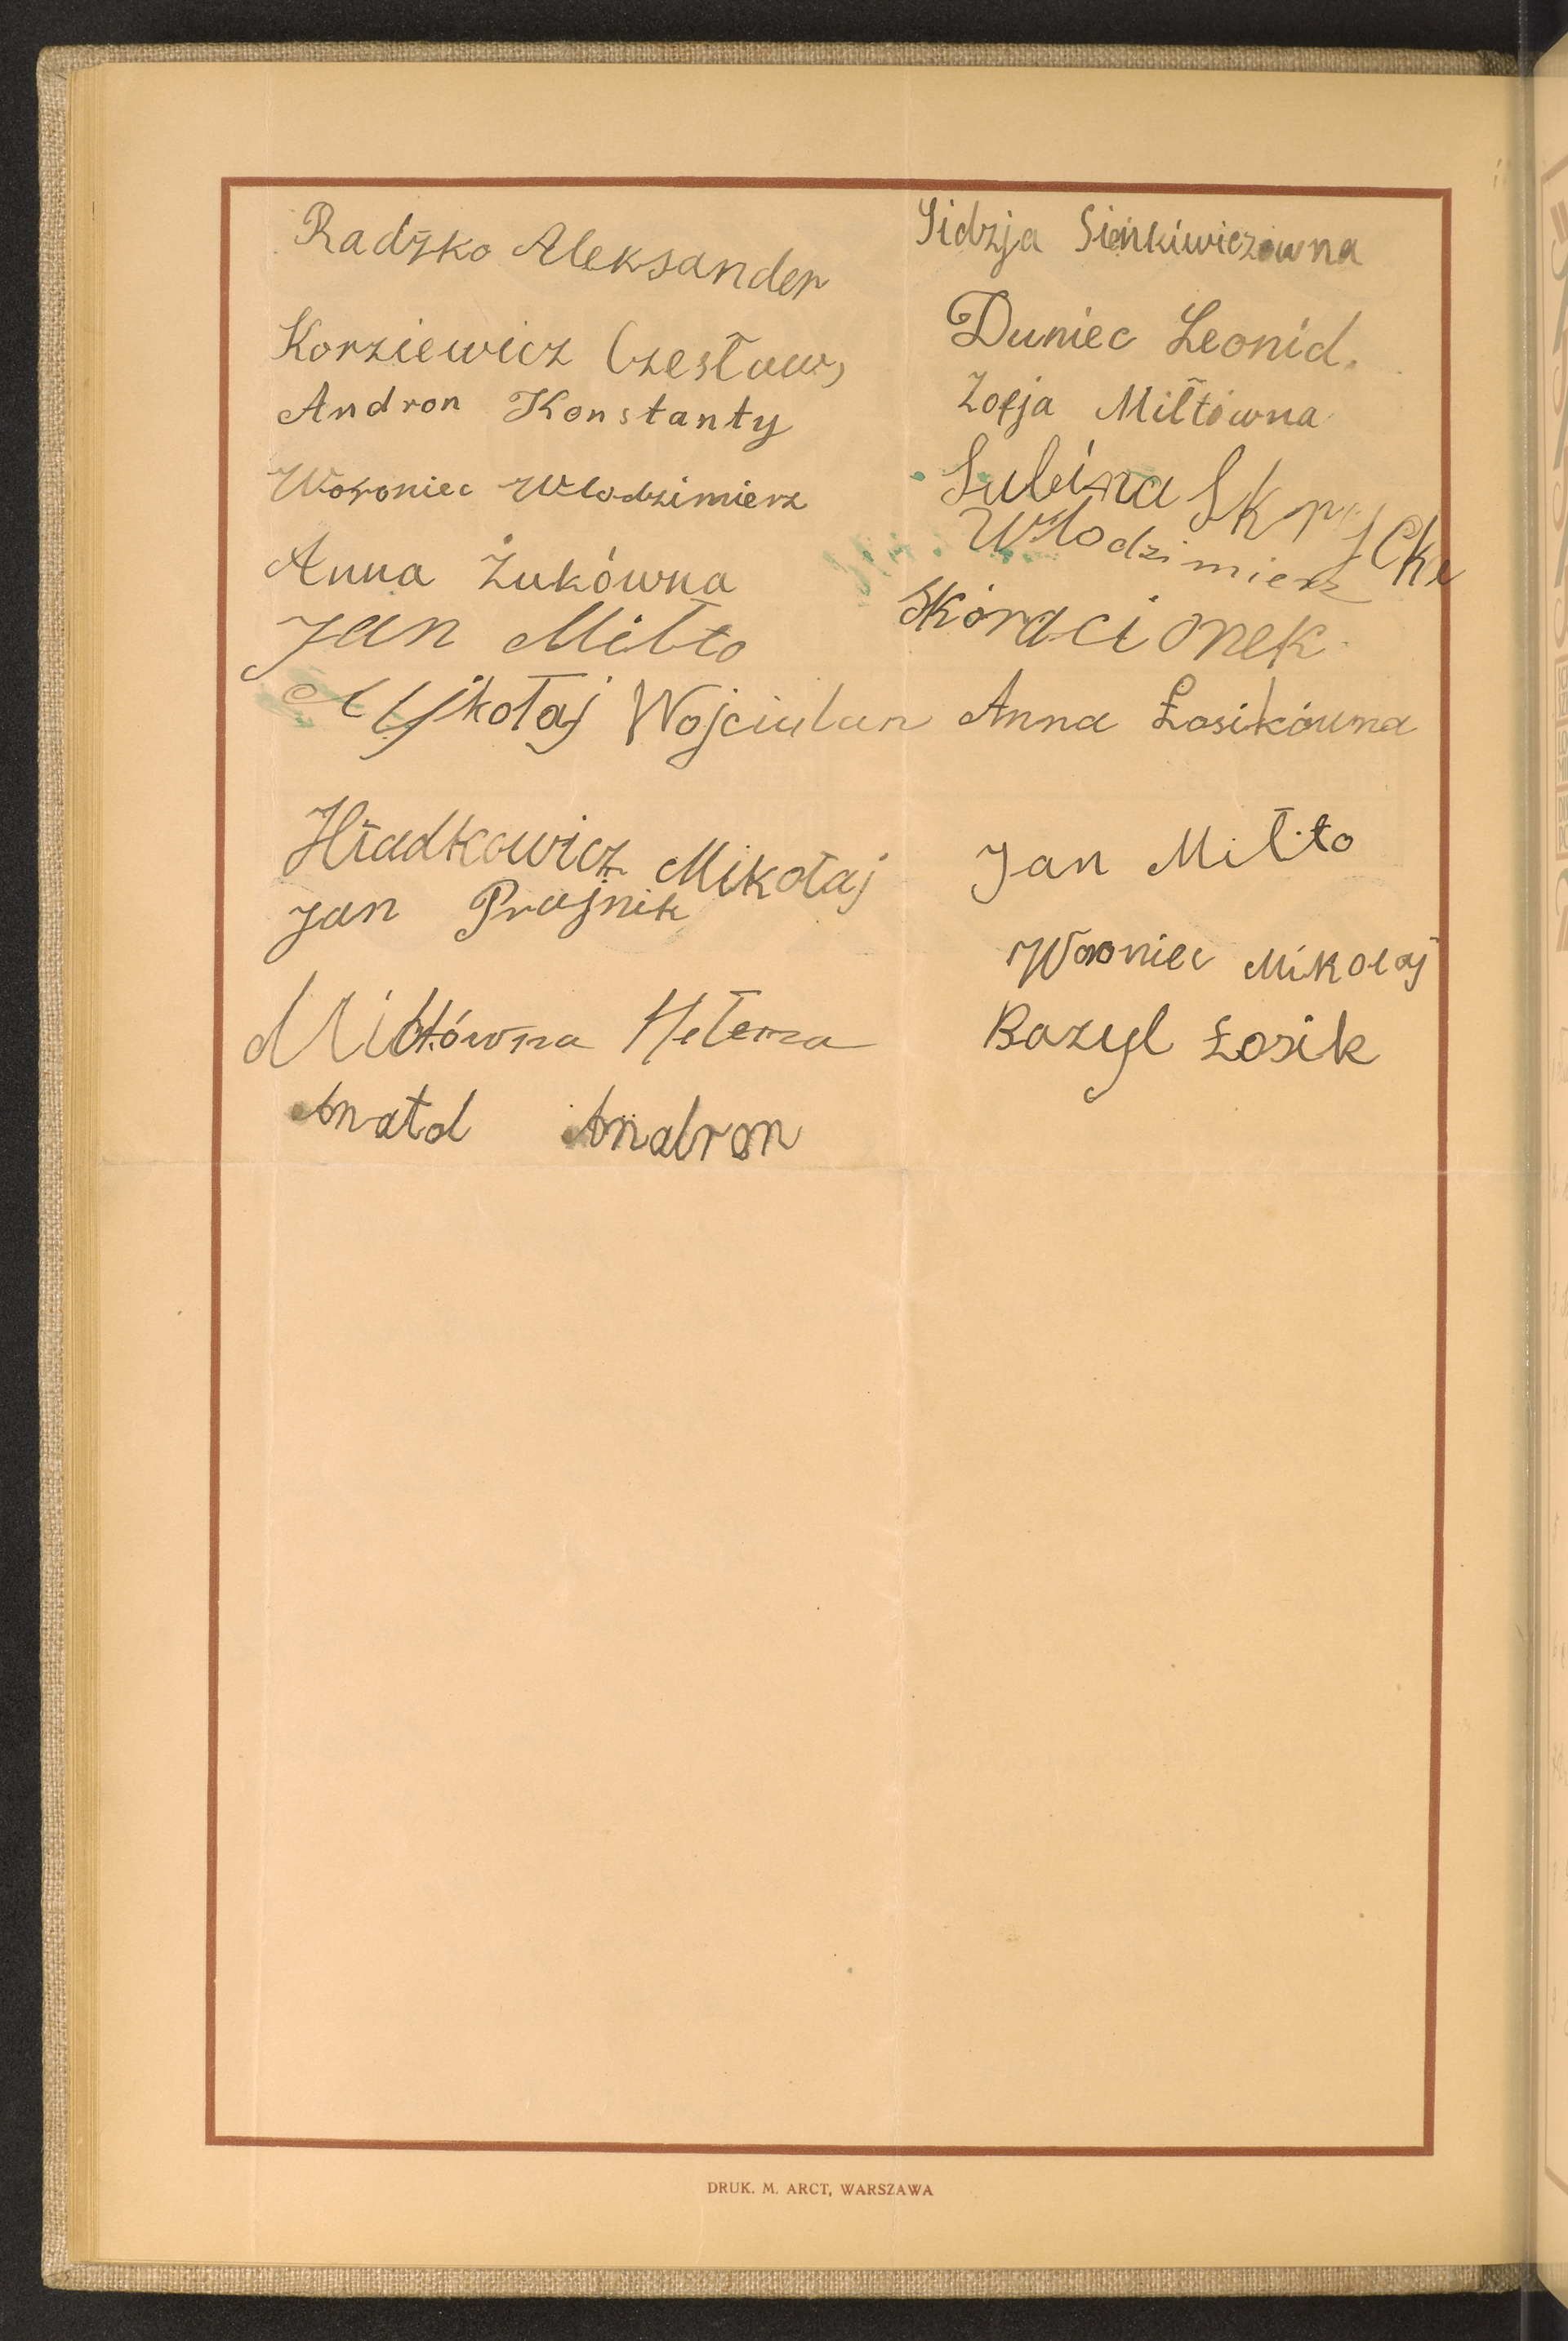 Radzko Aleksander
Korziewicz Czesław
Andron Konstanty
Woroniec Włodzimierz
Anna Żukówna
Jan Miłto
Mikołaj Wojciulan
Hładkowicz Mikołaj
Jan Prajnik
Miłtówna Helena
Anatol Andron
Lidzja Sienkiwiczowna
Duniec Leonid.
Zofja Miłtówna
Lubina
Włodzimierz
Skóracionek
Anna Łosikówna
Jan Miłto
Woroniec Mikołaj
Bazyl Łosik
DRUK. M. ARCT, WARSZAWA